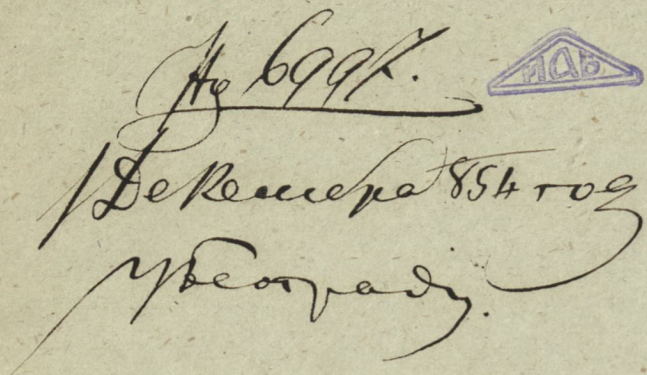 № 6997.
ИДБ
1 Декемвра 854 год
у Београду.